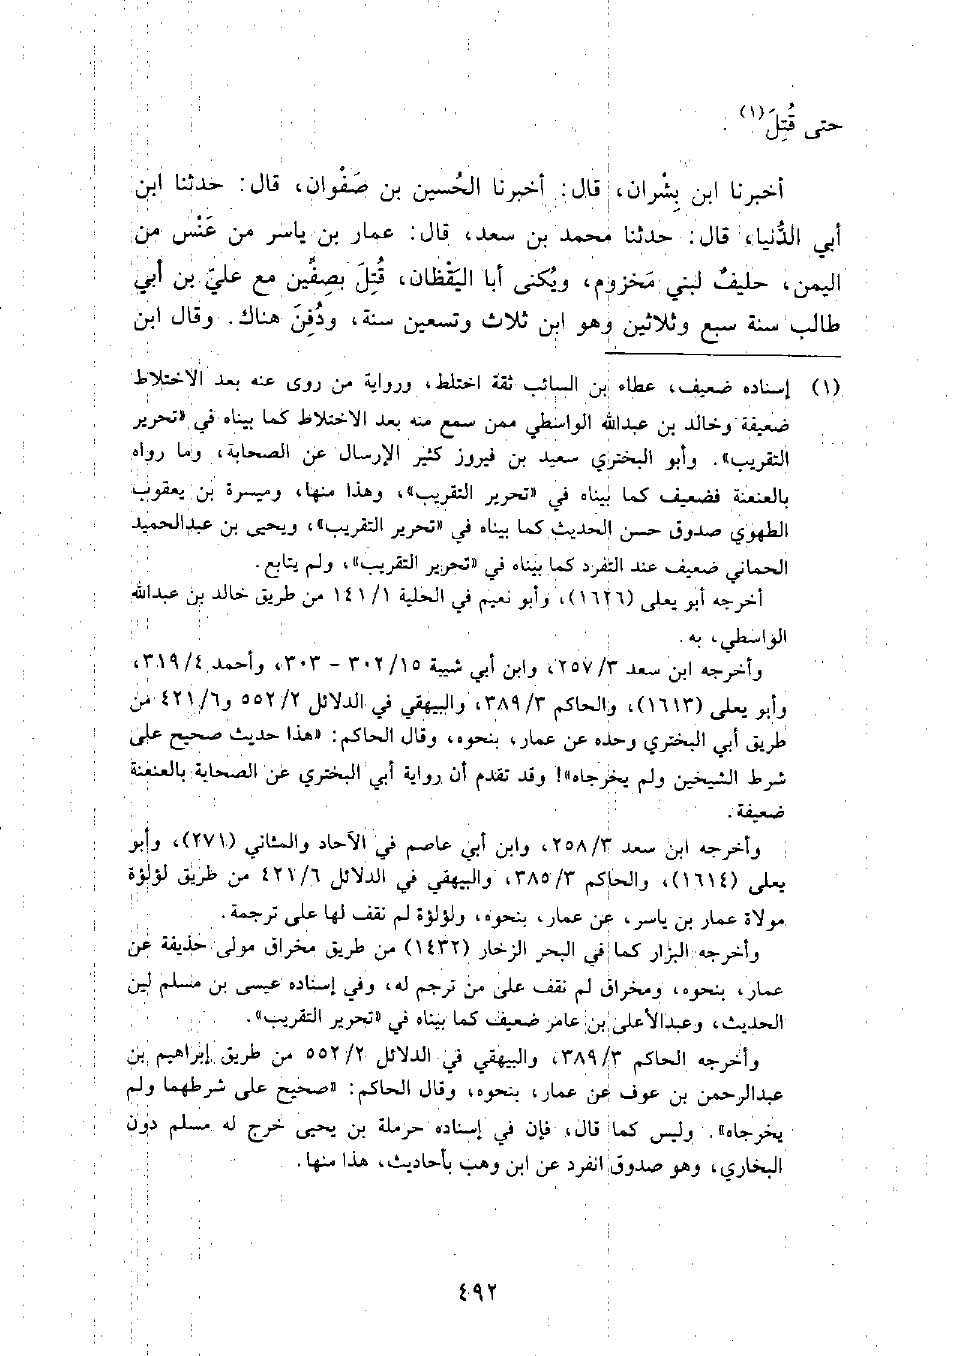 حتى قُتِلَ(١).
أخبرنا ابن بِشْران، قال: أخبرنا الحُسين بن صَفْوان، قال: حدثنا ابن
أبي الدُّنيا، قال: حدثنا محمد بن سعد، قال: عمار بن ياسر من عَنْس من
اليمن، حليفٌ لبني مَخزوم، ويُكنى أبا اليَقْظان، قُتِلَ بصِفِّين مع عليّ بن أبي
طالب سنة سبع وثلاثين وهو ابن ثلاث وتسعين سنة، ودُفِنَ هناك. وقال ابن
(١) إسناده ضعيف، عطاء بن السائب ثقة اختلط، ورواية من روى عنه بعد الاختلاط
ضعيفة وخالد بن عبدالله الواسطي ممن سمع منه بعد الاختلاط كما بيناه في «تحرير
التقريب». وأبو البختري سعيد بن فيروز كثير الإرسال عن الصحابة، وما رواه
بالعنعنة فضعيف كما بيناه في «تحرير التقريب»، وهذا منها، وميسرة بن يعقوب
الطهوي صدوق حسن الحديث كما بيناه في «تحرير التقريب»، ويحيى بن عبدالحميد
الحماني ضعيف عند التفرد كما بيناه في «تحرير التقريب»، ولم يتابع.
أخرجه أبو يعلى (١٦٢٦)، وأبو نعيم في الحلية ١/ ١٤١ من طريق خالد بن عبدالله
الواسطي، به.
وأخرجه ابن سعد ٣/ ٢٥٧، وابن أبي شيبة ١٥/ ٣٠٢ - ٣٠٣، وأحمد ٤/ ٣١٩،
وأبو يعلى (١٦١٣)، والحاكم ٣/ ٣٨٩، والبيهقي في الدلائل ٢/ ٥٥٢ و٦/ ٤٢١ من
طريق أبي البختري وحده عن عمار، بنحوه، وقال الحاكم: «هذا حديث صحيح على
شرط الشيخين ولم يخرجاه»! وقد تقدم أن رواية أبي البختري عن الصحابة بالعنعنة
ضعيفة.
وأخرجه ابن سعد ٣/ ٢٥٨، وابن أبي عاصم في الآحاد والمثاني (٢٧١)، وأبو
يعلى (١٦١٤)، والحاكم ٣/ ٣٨٥، والبيهقي في الدلائل ٦/ ٤٢١ من طريق لؤلؤة
مولاة عمار بن ياسر، عن عمار، بنحوه، ولؤلؤة لم نقف لها على ترجمة.
وأخرجه البزار كما في البحر الزخار (١٤٣٢) من طريق مخراق مولى حذيفة عن
عمار، بنحوه، ومخراق لم نقف على من ترجم له، وفي إسناده عيسى بن مسلم لين
الحديث، وعبدالأعلى بن عامر ضعيف كما بيناه في «تحرير التقريب».
وأخرجه الحاكم ٣/ ٣٨٩، والبيهقي في الدلائل ٢/ ٥٥٢ من طريق إبراهيم بن
عبدالرحمن بن عوف عن عمار، بنحوه، وقال الحاكم: «صحيح على شرطهما ولم
يخرجاه». وليس كما قال، فإن في إسناده حرملة بن يحيى خرج له مسلم دون
البخاري، وهو صدوق انفرد عن ابن وهب بأحاديث، هذا منها.
٤٩٢